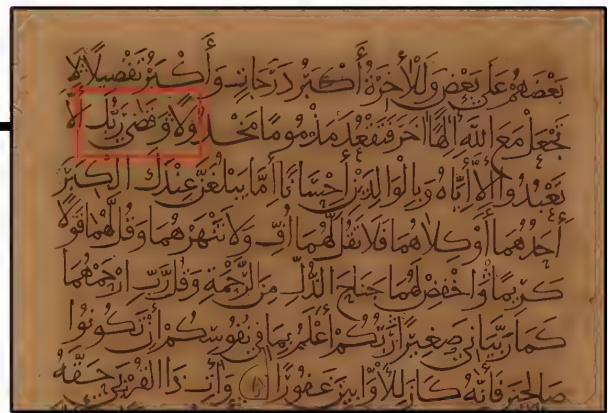 بَعْضَهُمْ عَلَى بَعْضٍ وَلَلْأَخِرَةُ أَكْبَرُ دَرَجَاتٍ وَأَكْبَرُ تَفْضِيلًا لَا
تَجْعَلْ مَعَ اللَّهِ إِلَهًا اَخَرَ فَتَقْعُدَ مَذْمُومًا مَخْذُولًا وَقَضَى رَبُّكَ أَلَّا
تَعْبُدُوا إِلَّا إِيَّاهُ وَبِالْوَالِدَيْنِ إِحْسَانًا إِمَّا يَبْلُغَنَّ عِنْدَكَ الْكِبَرَ
أَحَدُهُمَا أَوْ كِلَاهُمَا فَلَا تَقُلْ لَهُمَا أُفٍّ وَلَا تَنْهَرْهُمَا وَقُلْ لَهُمَا قَوْلًا
كَرِيمًا وَاخْفِضْ لَهُمَا جَنَاحَ الذُّلِّ مِنَ الرَّحْمَةِ وَقُلْ رَبِّ ارْحَمْهُمَا
كَمَا رَبَّيَانِي صَغِيرًا رَبُّكُمْ أَعْلَمُ بِمَا فِي نُفُوسِكُمْ إِنْ تَكُونُوا
صَالِحِينَ فَإِنَّهُ كَانَ لِلْأَوَّابِينَ غَفُورًا وَآتِ ذَا الْقُرْبَى حَقَّهُ